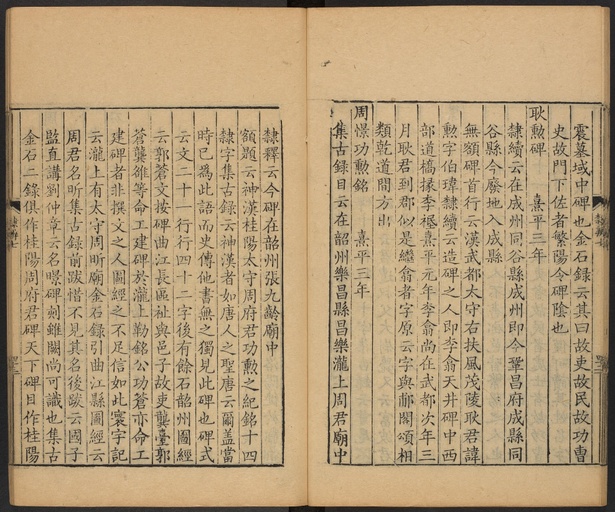 震墓域中碑也金石錄云其曰故吏故民故功曹
史故門下佐者繁陽令碑陰也
耿勲碑 熹平三年
隸續云在成州同谷縣成州即今鞏昌府成縣同
谷縣今廢地入成縣
無額碑首行云漢武都太守右扶風茂陵耿君諱
勲字伯瑋隸續云造碑之人即李翕天井碑中西
部道橋掾李禔熹平元年李翕尚在武都次年三
月耿君到郡似是繼翕者字原云字與郙閣頌相
類乾道間方出
周憬功勲銘 熹平三年
集古錄目云在韶州樂昌縣昌樂瀧上周君廟中
隸釋云今碑在韶州張九齡廟中
額題云神漢桂陽太守周府君功勲之紀銘十四
隸字集古錄云神漢者如唐人之聖唐云爾蓋當
時已為此語而史傳他書無之獨見此碑也碑式
云文二十一行行四十二字後有餘石韶州圖經
云郭蒼文按碑曲江長區祉與邑子故吏龔臺郭
蒼龔雒等命工建碑於瀧上勒銘公功蒼亦命工
建碑者非撰文之人圖經之不足信如此寰宇記
云瀧上有太守周昕廟金石錄引曲江縣圖經云
周君名昕集古錄前跋惜不見其名後跋云國子
監直講劉仲章云名暻碑刓雖闕尚可識也集古
金石二錄俱作桂陽周府君碑天下碑目作桂陽